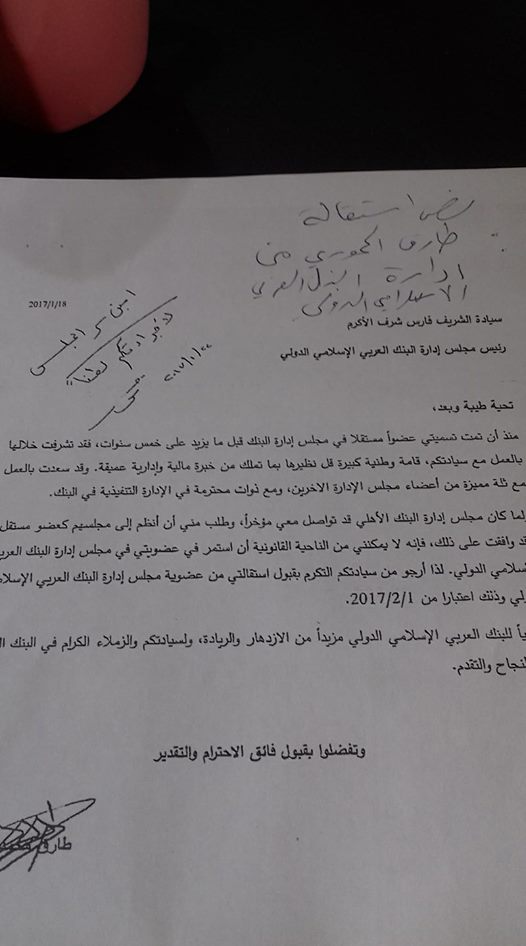 نص استقالة
طارق الحموري من
ادارة البنك العربي
الاسلامي الدولي
2017/1/18
امين سر المجلس
لإجراءاتكم لطفاً
سيادة الشريف فارس شرف الأكرم
رئيس مجلس إدارة البنك العربي الإسلامي الدولي
تحية طيبة وبعد،
منذ أن تمت تسميتي عضواً مستقلا في مجلس إدارة البنك قبل ما يزيد على خمس سنوات، فقد تشرفت خلالها
بالعمل مع سيادتكم، قامة وطنية كبيرة قل نظيرها بما تملك من خبرة مالية وإدارية عميقة. وقد سعدت بالعمل
مع ثلة مميزة من أعضاء مجلس الإدارة الاخرين، ومع ذوات محترمة في الإدارة التنفيذية في البنك.
لما كان مجلس إدارة البنك الأهلي قد تواصل معي مؤخراً، وطلب مني أن أنظم إلى مجلسهم كعضو مستقل
قد وافقت على ذلك، فإنه لا يمكنني من الناحية القانونية أن استمر في عضويتي في مجلس إدارة البنك العربي
إسلامي الدولي. لذا أرجو من سيادتكم التكرم بقبول استقالتي من عضوية مجلس إدارة البنك العربي الإسلا
ولي وذلك اعتبارا من 2017/2/1.
للبنك العربي الإسلامي الدولي مزيداً من الازدهار والريادة، ولسيادتكم والزملاء الكرام في البنك
النجاح والتقدم.
وتفضلوا بقبول فائق الاحترام والتقدير
طارق